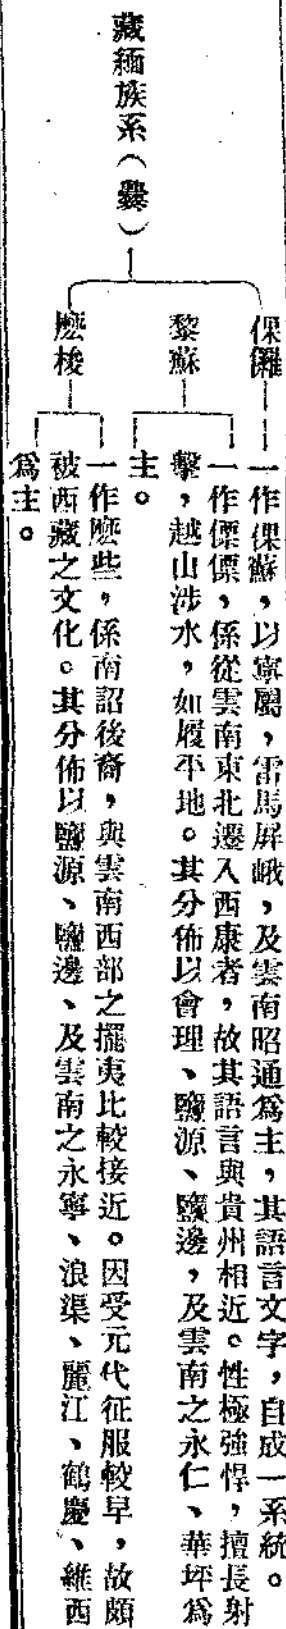 藏緬族系（爨）
倮儸
一作倮蘇，以寧屬，雷馬屏峨，及雲南昭通爲主，其語言文字，自成一系統。
黎蘇
一作傈僳，係從雲南東北遷入西康者，故其語言與貴州相近。性極強悍，擅長射
擊，越山涉水，如履平地。其分佈以會理、鹽源、鹽邊，及雲南之永仁、華坪爲
主。
麽梭
一作麽些，係南詔後裔，與雲南西部之擺夷比較接近。因受元代征服較早，故頗
被西藏之文化。其分佈以鹽源、鹽邊、及雲南之永寧、浪渠、麗江、鶴慶、維西
爲主。